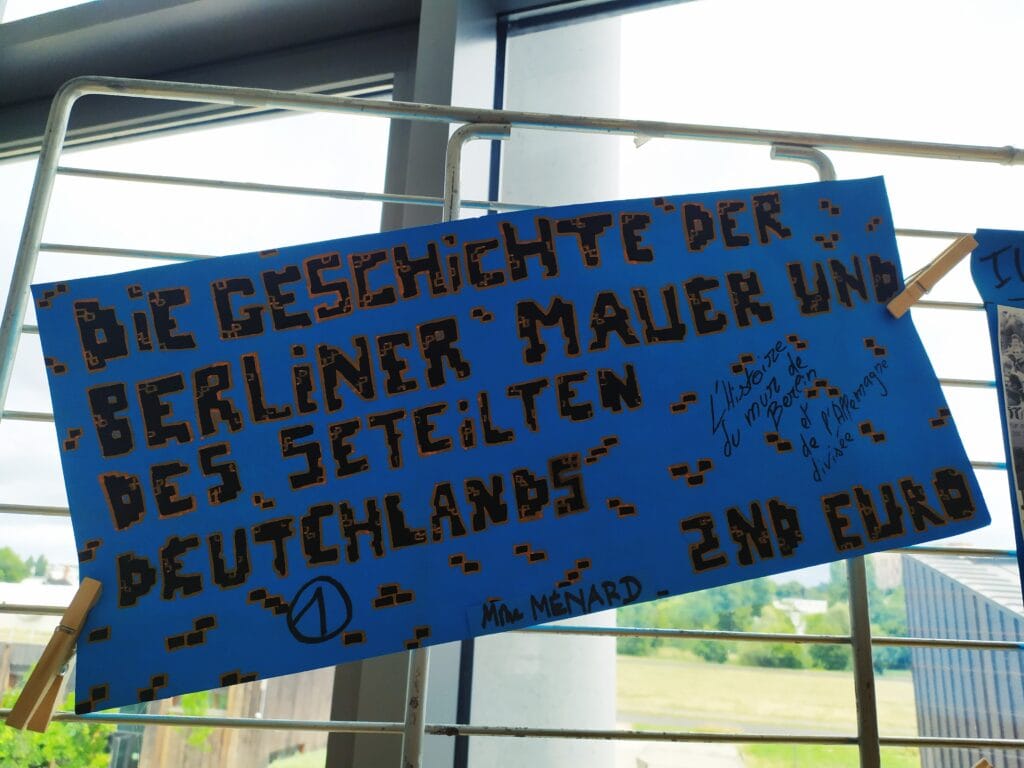 DiE GESCHiCHTE DER
BERLiNER MAUER UND
DES SETEiLTEN
DEUTCHLANDS
L'Histoire
du mur de
Berlin
et
de l'Allemagne
divisée
2ND EURO
1
Mme MÉNARD